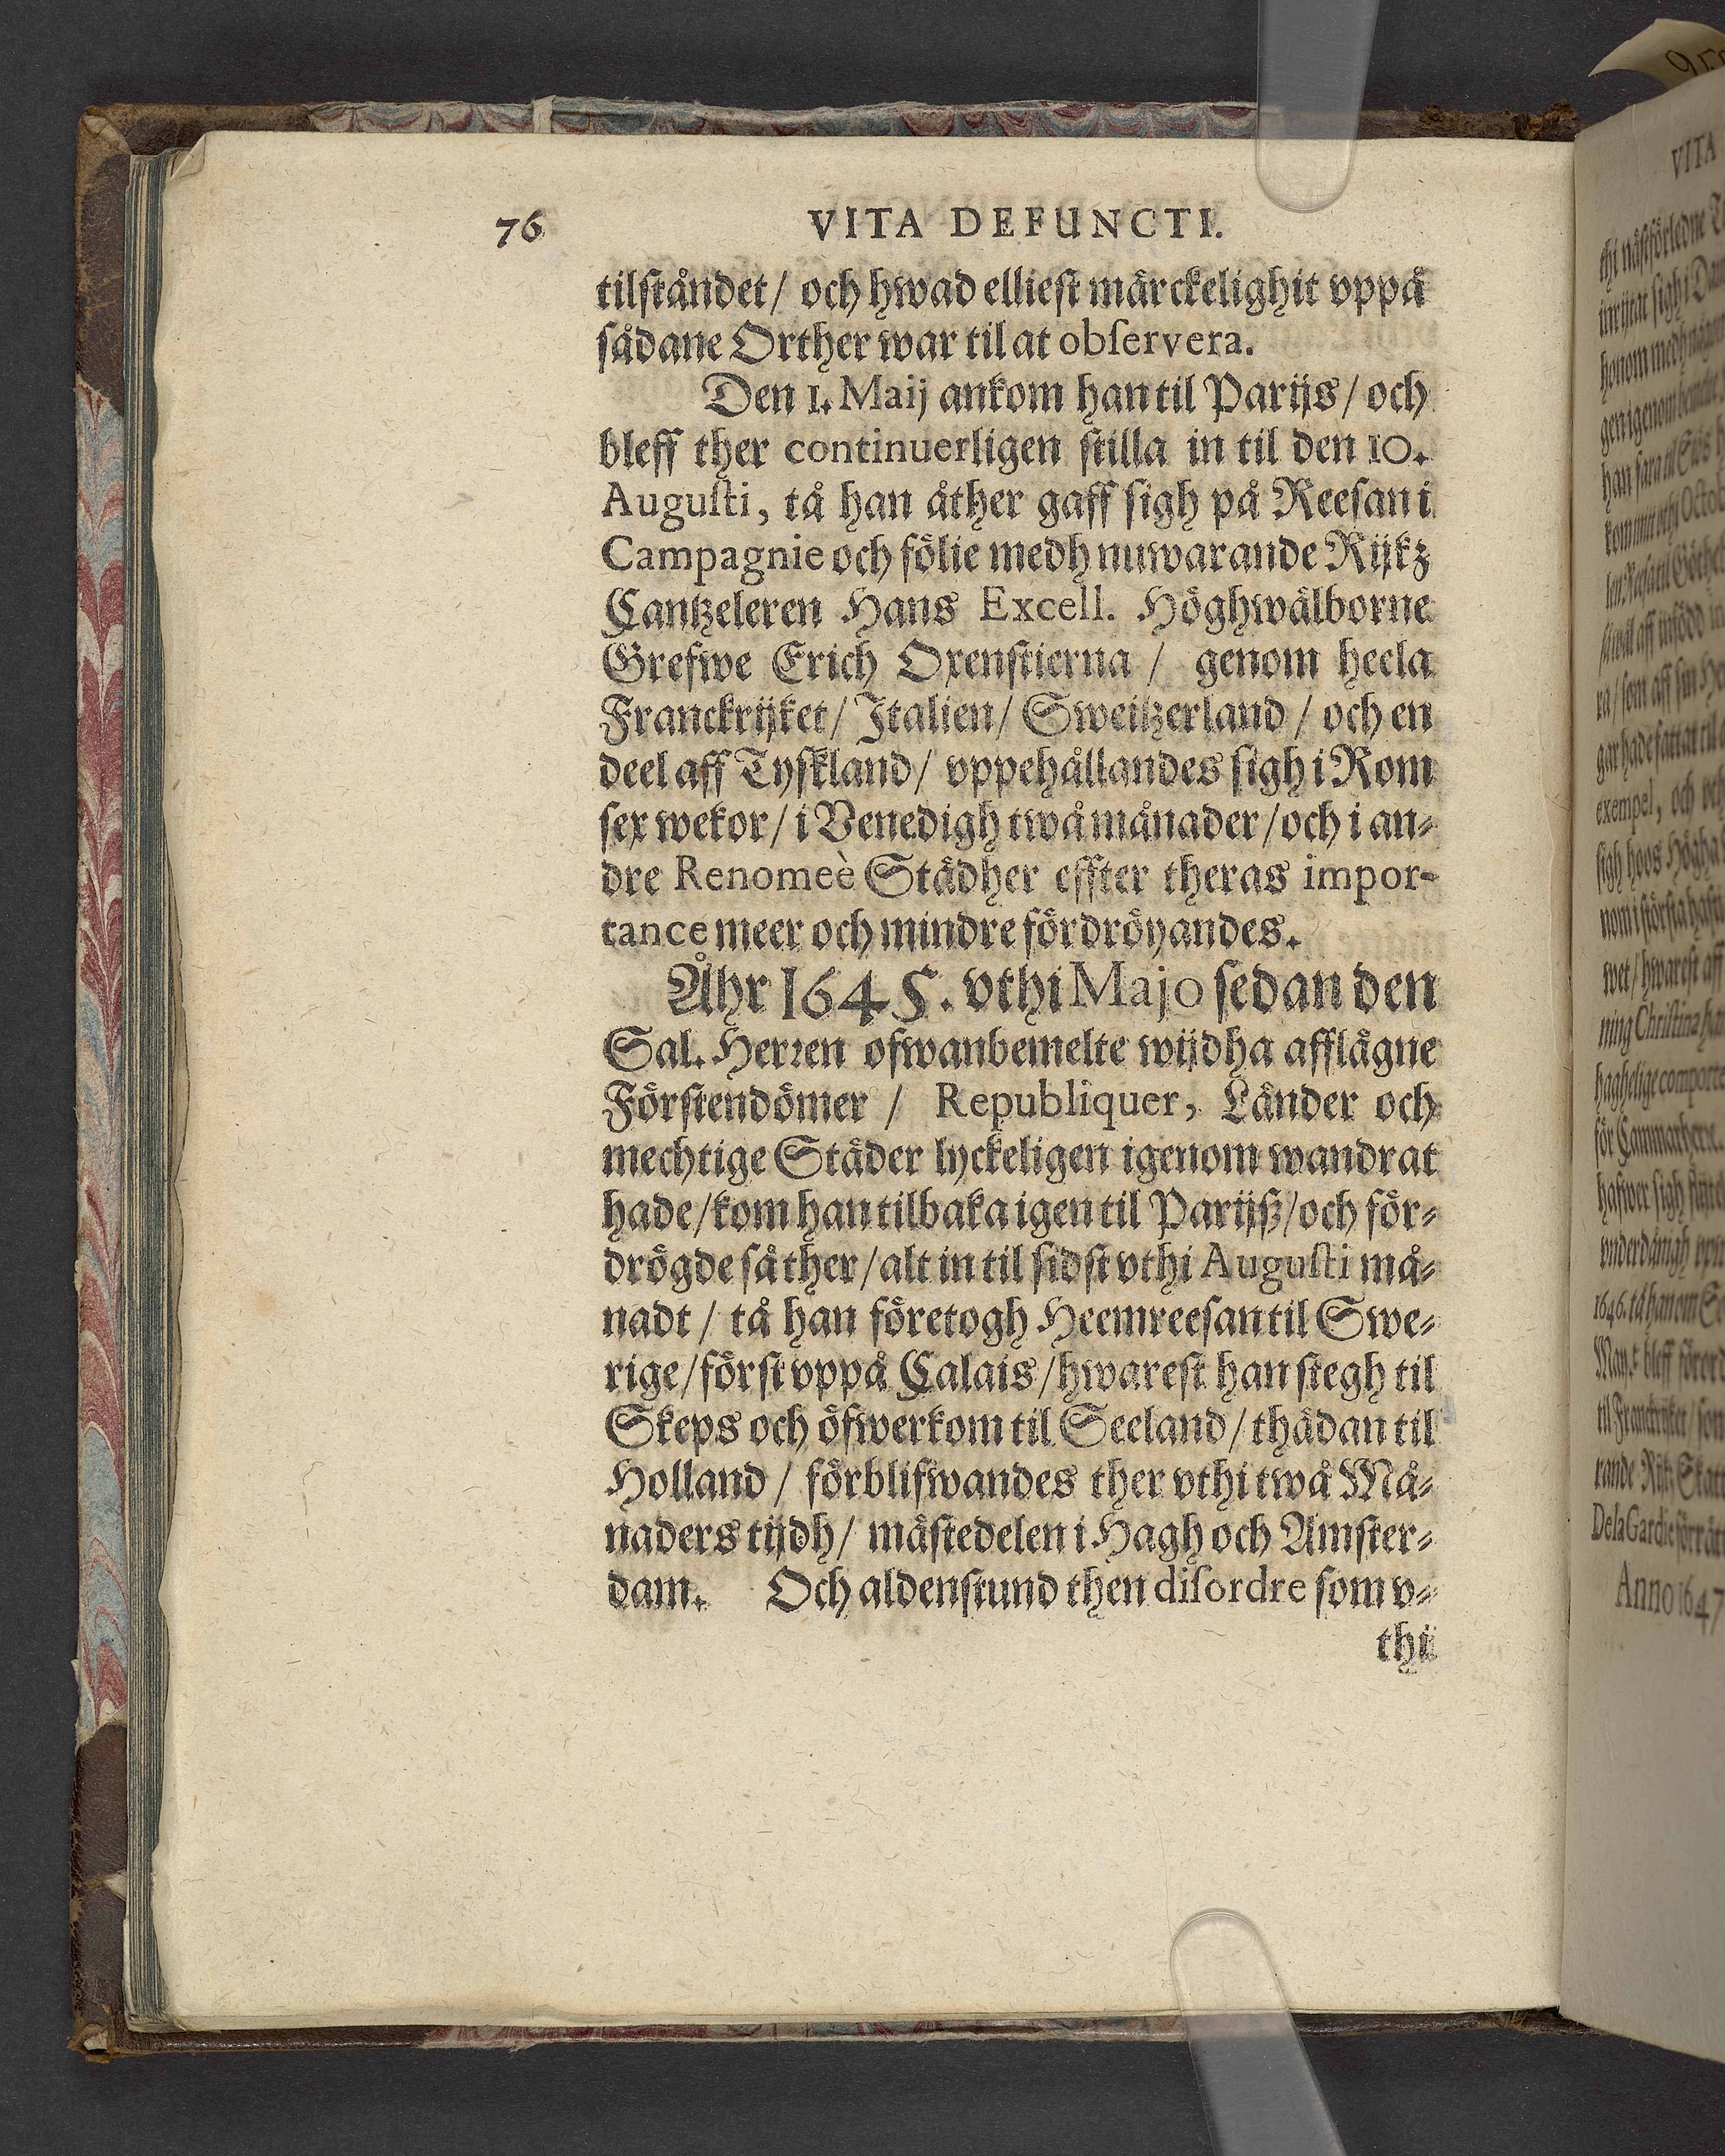 76 VITA DEFUNCTI.
tilståndet / och hwad elliest märckelighit vppå
sådane Orther war til at obſervera.
Den 1. Maij ankom han til Parijs / och
bleff ther continuerligen stilla in til den 10.
Auguſti, tå han åther gaff sigh på Reesan i
Campagnie och fölie medh nuwarande Rijkz
Cantzeleren Hans Excell. Höghwälborne
Grefwe Erich Oxenstierna / genom heela
Franckrijket / Italien / Sweitzerland / och en
deel aff Tyskland / vppehållandes sigh i Rom
sex wekor / i Venedigh twå månader / och i an-
dre Renomeè Städher effter theras impor-
tance meer och mindre fördröyandes.
Åhr 1645. vthi Majo sedan den
Sal. Herren ofwanbemelte wijdha afflägne
Förstendömer / Republiquer, Länder och
mechtige Städer lyckeligen igenom wandrat
hade / kom han tilbaka igen til Parijß / och för-
drögde så ther / alt in til sidst vthi Auguſti må-
nadt / tå han företogh Heemreesan til Swe-
rige / först vppå Calais / hwarest han stegh til
Skeps och öfwerkom til Seeland / thädan til
Holland / förblifwandes ther vthi twå Må-
naders tijdh / mästedelen i Hagh och Amster-
dam. Och aldenstund then diſordre som v-
thi
VITA
thi
honom
han
exempel, och
ning Christina
1646.
De la Gardie
Anno 1647